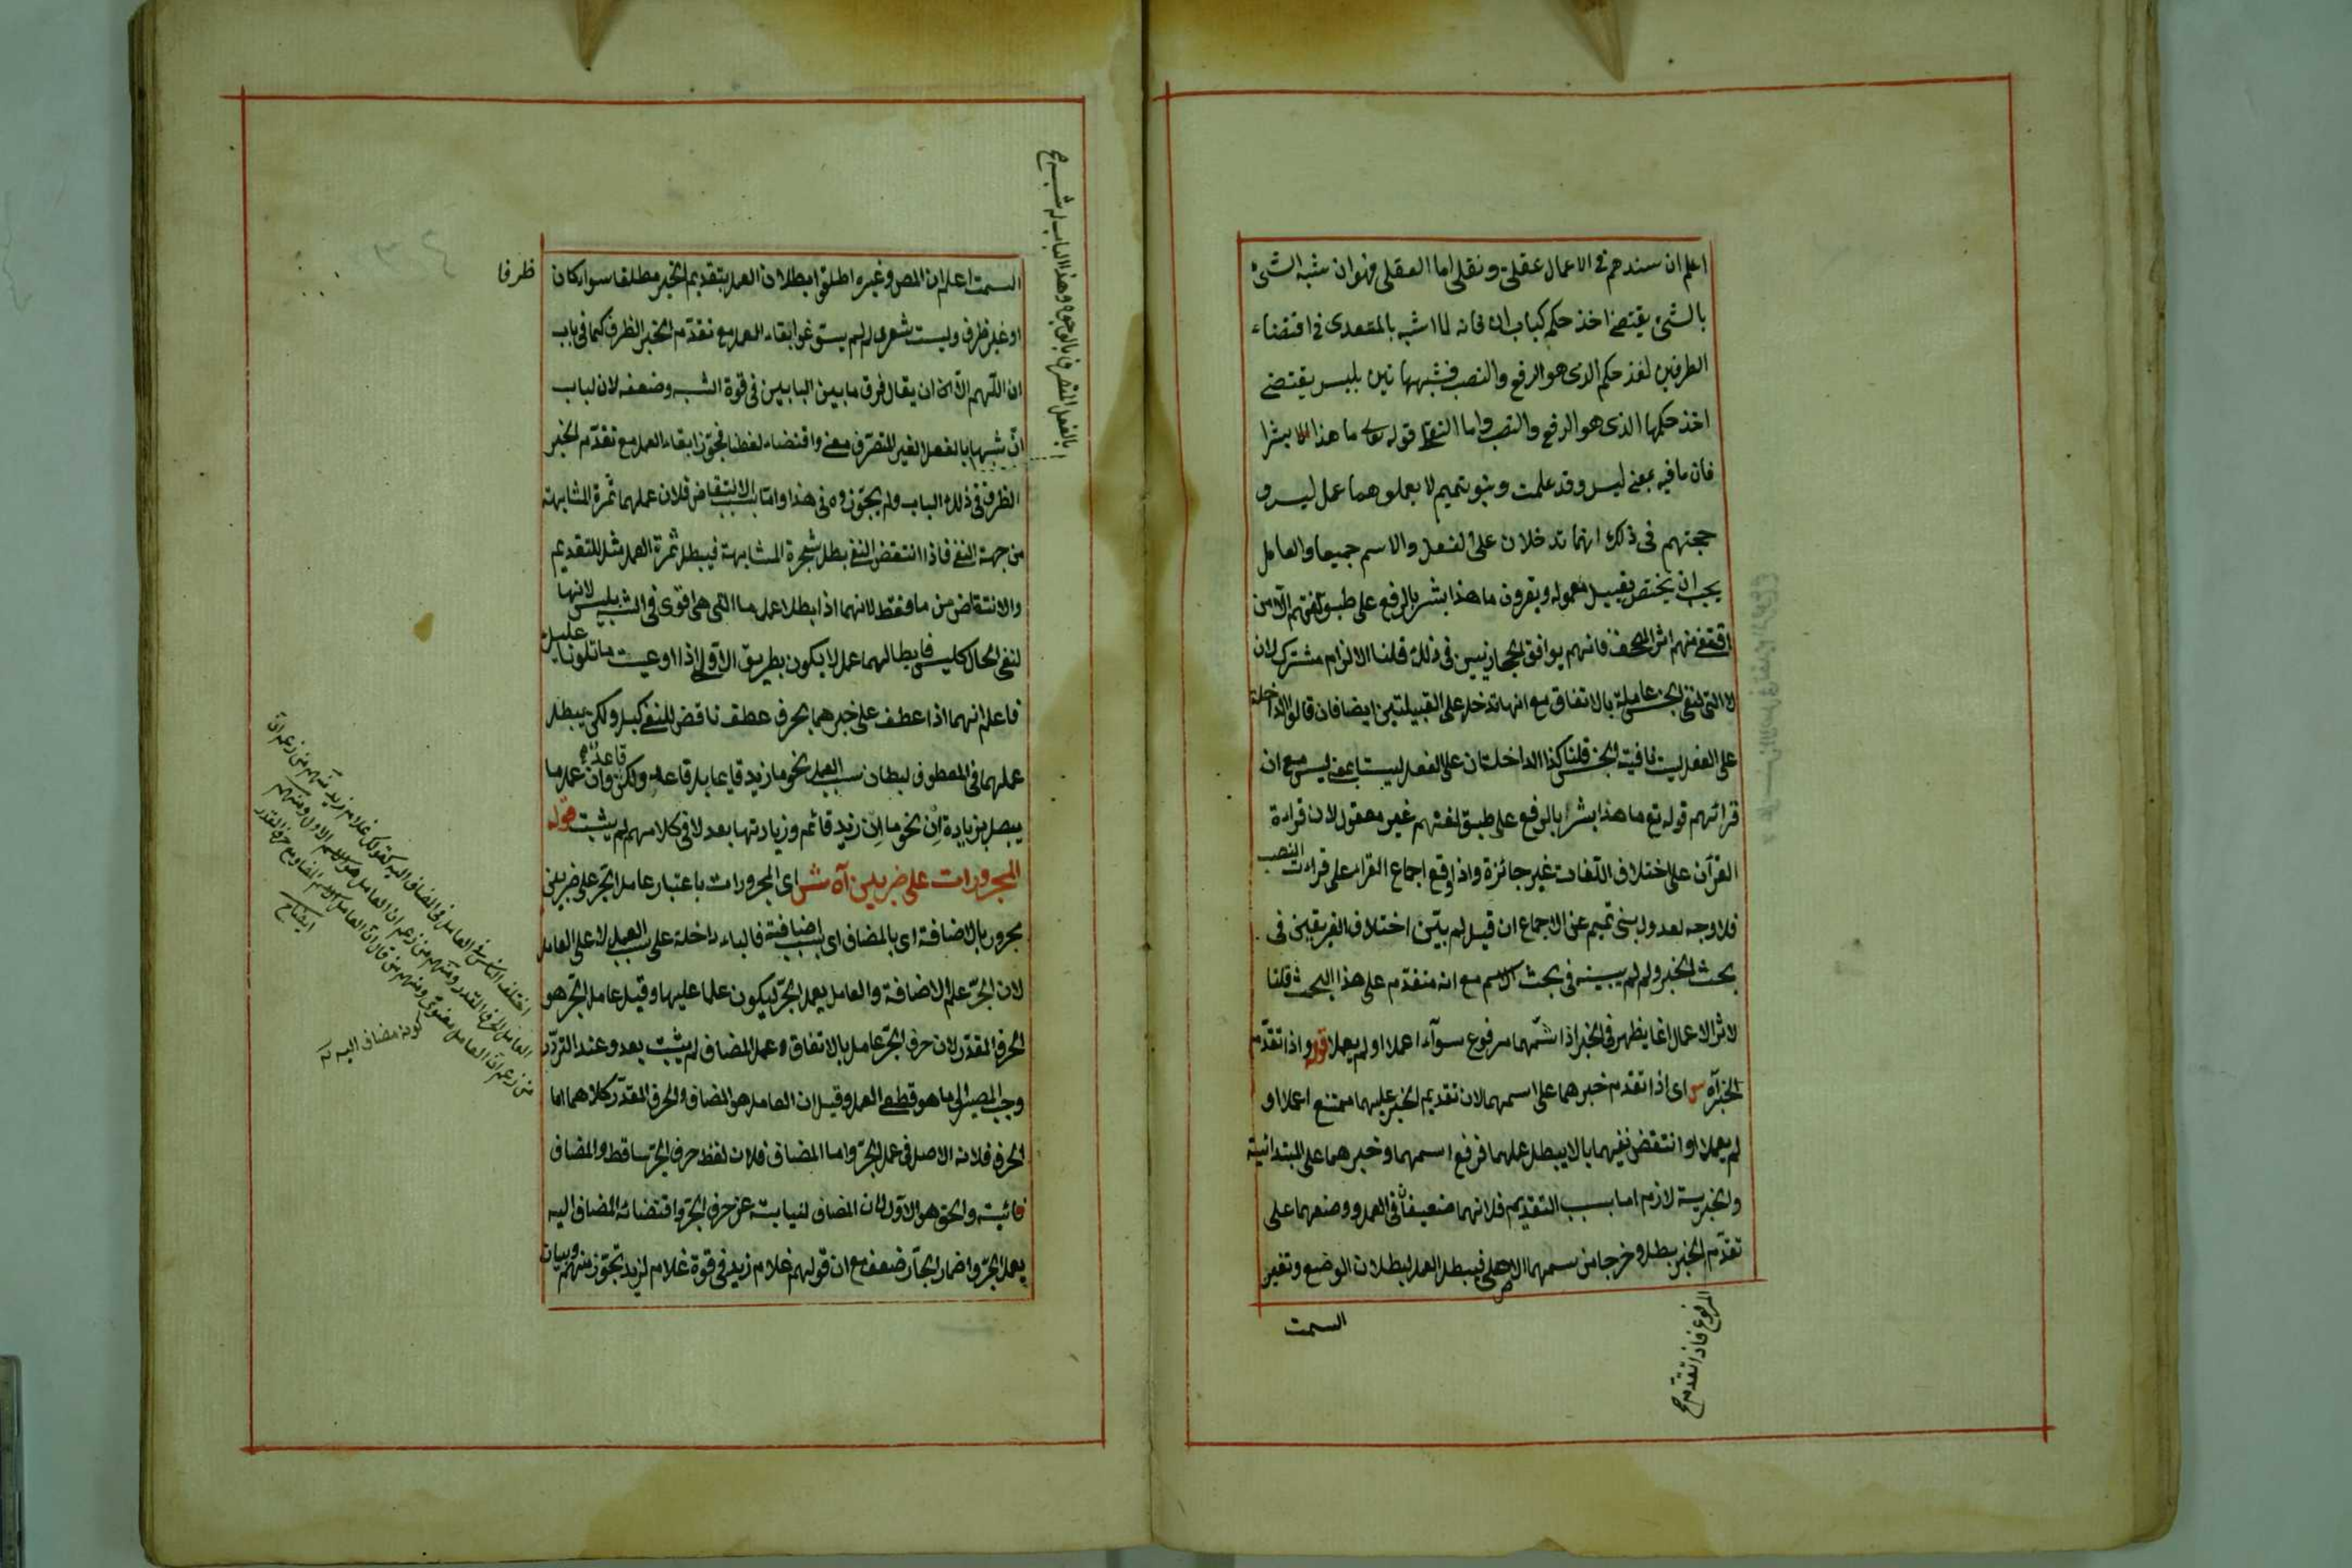 اعلم ان سندهم فى الاعمال عقلى ونقلى اما العقلى فهو ان شبه الشئ
بالشئ يقتضى اخذ حكمه كباب ان فانه لما اشبه بالمتعدى فى اقتضاء
الطرفين اخذ حكم الذى هو الرفع والنصب فشبههاتين بليس يقتضى
اخذ حكمها الذى هو الرفع والنصب واما النقلى قوله تعالى ما هذا بشرا
فان ما فيه بمعنى ليس وقد علمت وبنو تميم لا يعملوهما عمل ليس و
حجتهم فى ذلك انهما تدخلان على الفعل والاسم جميعا والعامل
يجب ان يختص بقبيل معموله ويقرؤن ما هذا بشر بالرفع على طبق لغتهم الا من
اقتفى منهم اثر المصحف فانهم يوافق الحجازيين فى ذلك قلنا الالزام مشترك لان
لا التى لنفى الجنس عاملة بالاتفاق مع انها تدخل على القبيلتين ايضا فان قالوا الداخلة
على الفعل ليست نافية الجنس قلنا كذا الداخلتان على الفعل ليستا بمعنى ليس مع ان
قرائهم قوله تع ما هذا بشرا بالرفع على طبق لغتهم غير معقول لان قراءة
القرآن على اختلاف اللغات غير جائزة واذا وقع اجماع القراء على قراءت النصب
فلا وجه لعدول بنى تميم عن الاجماع ان قيل لم بيّن اختلاف الفريقين فى
بحث الخبر ولم لم يبينه فى بحث الاسم مع انه متقدم على هذا البحث قلنا
لاثر الاعمال انما يظهر فى الخبر اذا اسمهما مرفوع سوآء اعملا او لم يعملا قوله واذا تقدم
الخبر آه ش اى اذا تقدم خبرهما على اسمهما لان تقديم الخبر عليهما ممتنع اعملا او
لم يعملا او انتقض نفيهما بالا يبطل عملهما فرفع اسمهما وخبرهما على المبتدائية
والخبرية لازم اما بسبب التقديم فلانهما ضعيفان فى العمل ووضعهما على
تقدم الخبر بطل وخرجا من سمهما الاصلى فيبطل العمل لبطلان الوضع وتغير
المرفوع فاذا تقدم
السمت
السمت اعلم ان المص وغيره اطلق ابطلان العمل بتقديم الخبر مطلقا سواء كان ظرفا
او غير ظرف وليت شعرى لم لم يسوغوا بقاء العمل مع تقدم الخبر الظرف كما فى باب
ان اللهم الا ان يقال فرق ما بين البابين فى قوة الشبه وضعفه لان لباب
ان شبها بالفعل الغير المتصرف معنى واقتضاء لفظا فجوز ابقاء العمل مع تقدم الخبر
الظرف فى ذلك الباب ولم يجوزوه فى هذا واما بسبب الانتقاض فلان عملهما ثمرة المشابهة
من جهة النفى فاذا انتقض النفى بطل شجرة المشابهة فيبطل ثمرة العمل مثل التقديم
والانتقاض من ما فقط لانهما اذا ابطلا عمل ما التى هى اقوى فى الشبه بليس لانها
لنفى الحال كليس فابطالهما عمل لا يكون بطريق الاولى اذا اوعيت ما تلونا عليك
فاعلم انهما اذا عطف على خبرهما بحرف عطف ناقض للنفى كبل ولكن يبطل
عملهما فى المعطوف لبطلان سبب العمل نحو ما زيد قايما بل قاعد ولكن قاعد وان عمل ما
يبطل بزيادة ان نحو ما ان زيد قائم وزيادتها بعد لا فى كلامهم لم يثبت قوله
المجرورات على ضربين آه ش اى المجرورات باعتبار عامل الجر على ضربين
مجرور بالاضافة اى بالمضاف اى بسبب اضافية فالباء داخلة على سبب العمل لا على العامل
لان الجر علم الاضافة والعامل يعمل الجر ليكون علما عليها وقيل عامل الجر هو
الحرف المقدر لان حرف الجر عامل بالاتفاق وعمل المضاف لم يثبت بعد وعند التردد
وجب المصير الى ما هو قطعى العمل وقيل ان العامل هو المضاف والحرف المقدر كلاهما اما
الحرف فلانه الاصل فى عمل الجر واما المضاف فلان لفظ حرف الجر ساقط والمضاف
نائبه والحق هو الاول لان المضاف لنيابته عن حرف الجر واقتضائه المضاف اليه
يعمل الجر واضمار الجار ضعف مع ان قولهم غلام زيد فى قوة غلام لزيد تجوز منهم وبيان
بالفعل المتصرف بالوجوه وهذا الباب له شبه
اختلف الناس فى العامل فى المضاف اليه كقولك غلام زيد منهم من زعم ان
العامل الحرف المقدر ومنهم من زعم ان العامل هو الاسم الاول ومنهم
من زعم ان العامل معنوى ومنهم من قال ان العامل الاسم المضاف مع حرف المقدر
كونه مضاف اليه